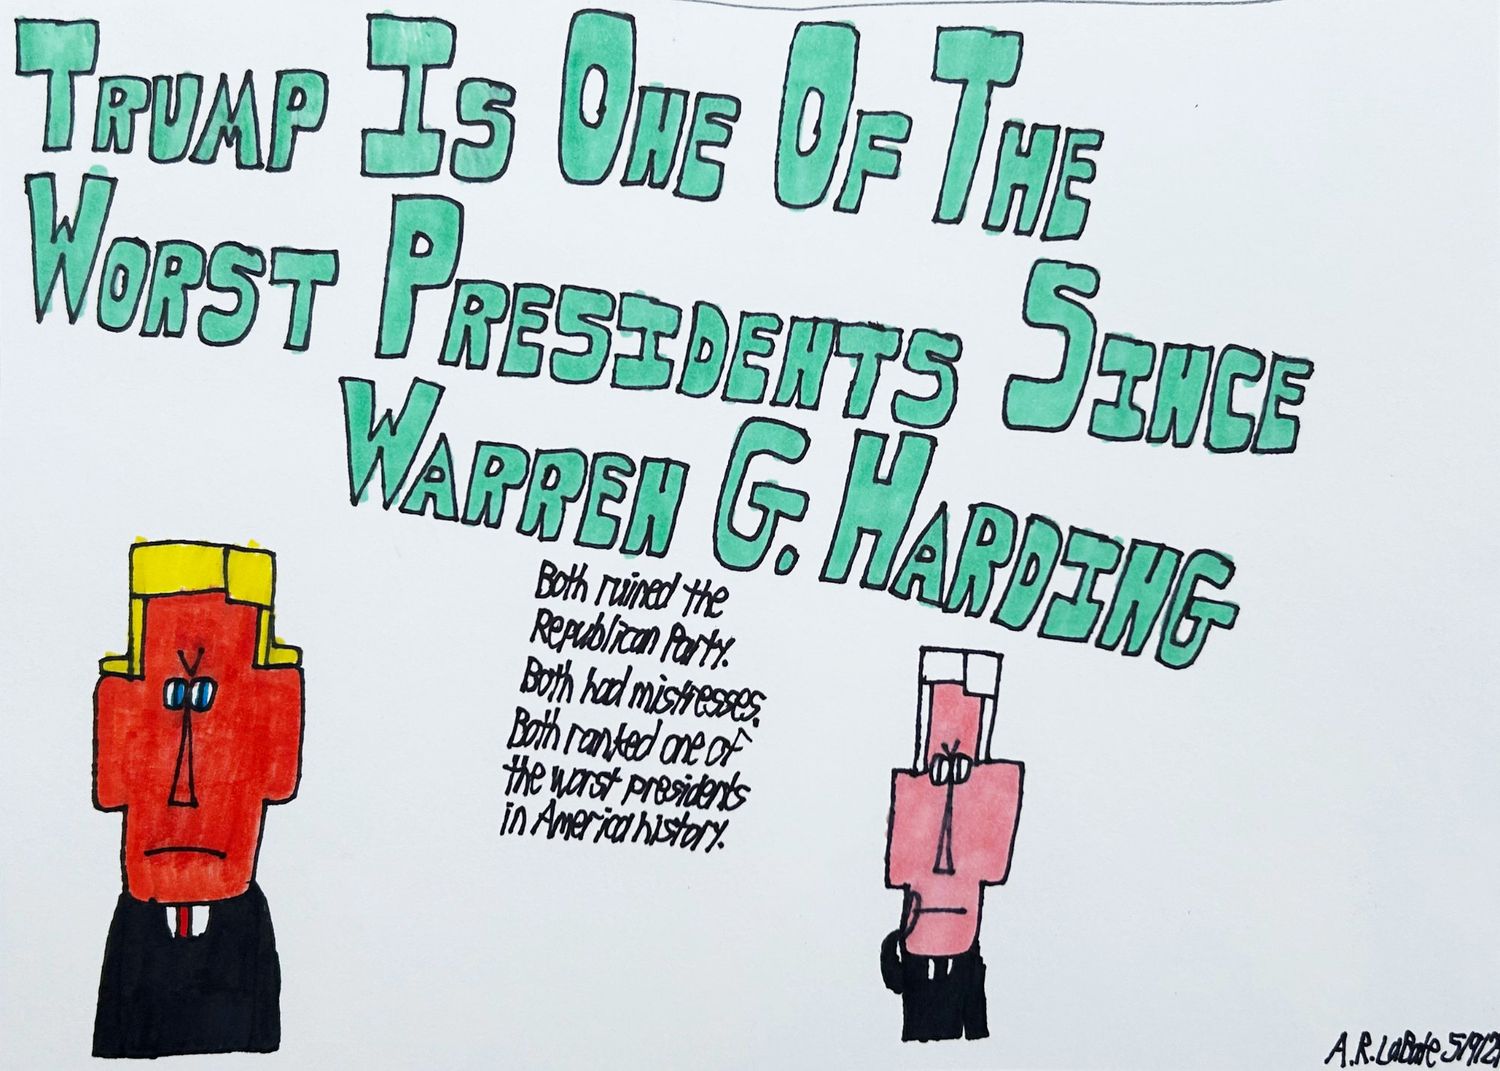 TRUMP IS ONE OF THE
WORST PRESIDENTS SINCE
WARREN G. HARDING
Both ruined the
Republican Party.
Both had mistresses.
Both ranked one of
the worst presidents
in America history.
A.R.LaBate 5/9/2